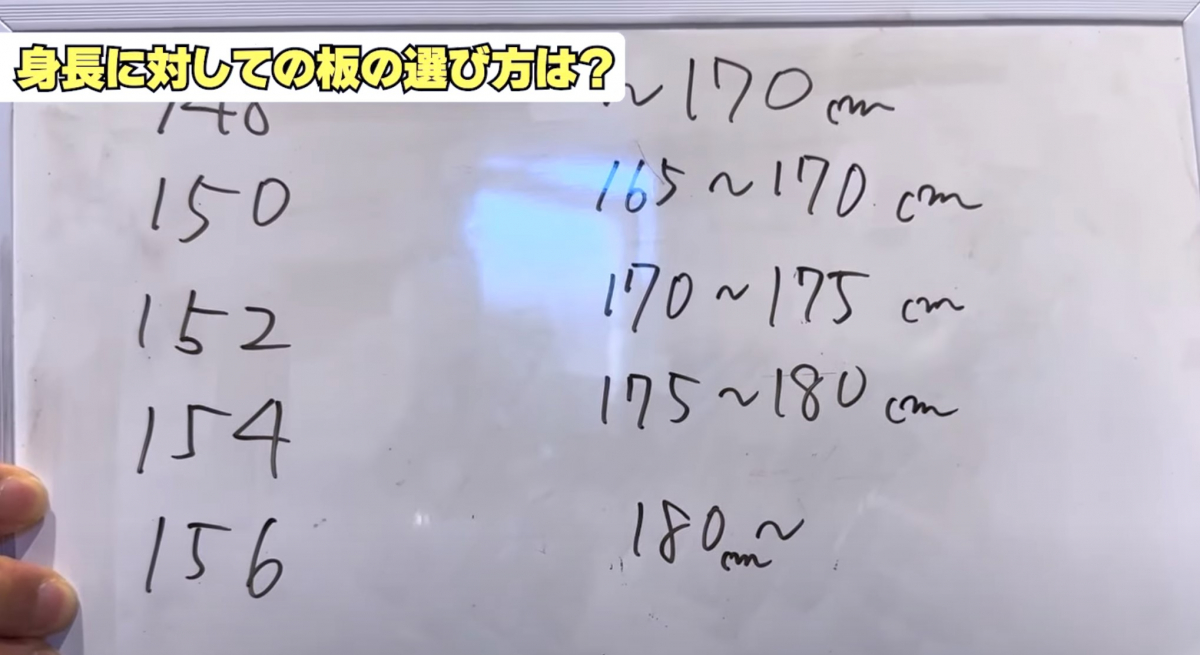 身長に対しての板の選び方は？
～170cm
150 165～170cm
152 170～175cm
154 175～180cm
156 180cm～